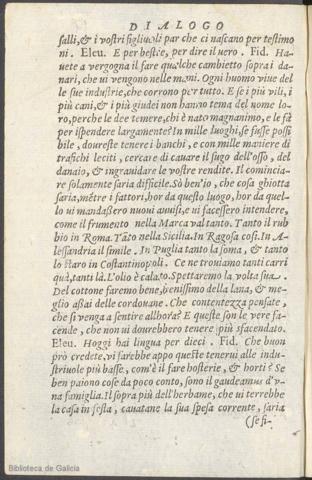 DIALOGO
salli,& i vostri figliuoli par che ci nascano per testimo
ni. Eleu. E per bestie, per dire il uero. Fid. Ha
uete a vergogna il fare qualche cambietto sopra i da
nari, che ui vengono nelle mani. Ogni huomo viue del
le sue industrie, che corrono per tutto. E se i più vili, i
più cani,& i più giudei non hanno tema del nome lo-
ro, perche le dee temere, chi è nato magnanimo, e le fà
per ispendere largamente? In mille luoghi, se fusse possi
bile, doureste tenere i banchi, e con mille maniere di
trafichi leciti, cercare di cauare il sugo dell'osso, del
danaio, & ingrauidare le vostre rendite. Il comincia-
re solamente saria difficile. Sò ben'io, che cosa ghiotta
saria, mētre i fattori, hor da questo luogo, hor da quel-
lo ui mandassero nuoui auuisi, e ui facessero intendere,
come il frumento nella Marca val tanto. Tanto il rub
bio in Roma. Tāto nella Sicilia. In Ragosa cosi. In A-
lessandria il simile. In Puglia tanto la soma, & tanto
lo staro in Costantinopoli. Ce ne trouiamo tanti carri
quà, tanti là. L'olio è calato. Spettaremo la volta sua.
Del cottone faremo bene, benissimo della lana, & me-
glio assai delle cordouane. Che contentezza pensate,
che si venga a sentire allhora? E queste son le vere fa-
cende, che non ui dourebbero tenere più sfacendato.
Eleu. Hoggi hai lingua per dieci. Fid. Che buon
prò credete, vi farebbe appo queste tenerui alle indu-
striuole più basse, com'è il fare hosterie, & horti? Se
ben paiono cose da poco conto, sono il gaudeamus d'v-
na famiglia. Il sopra più dell'herbame, che ui terrebbe
la casa in sesta, cauatane la sua spesa corrente, saria
(se si-
Biblioteca de Galicia